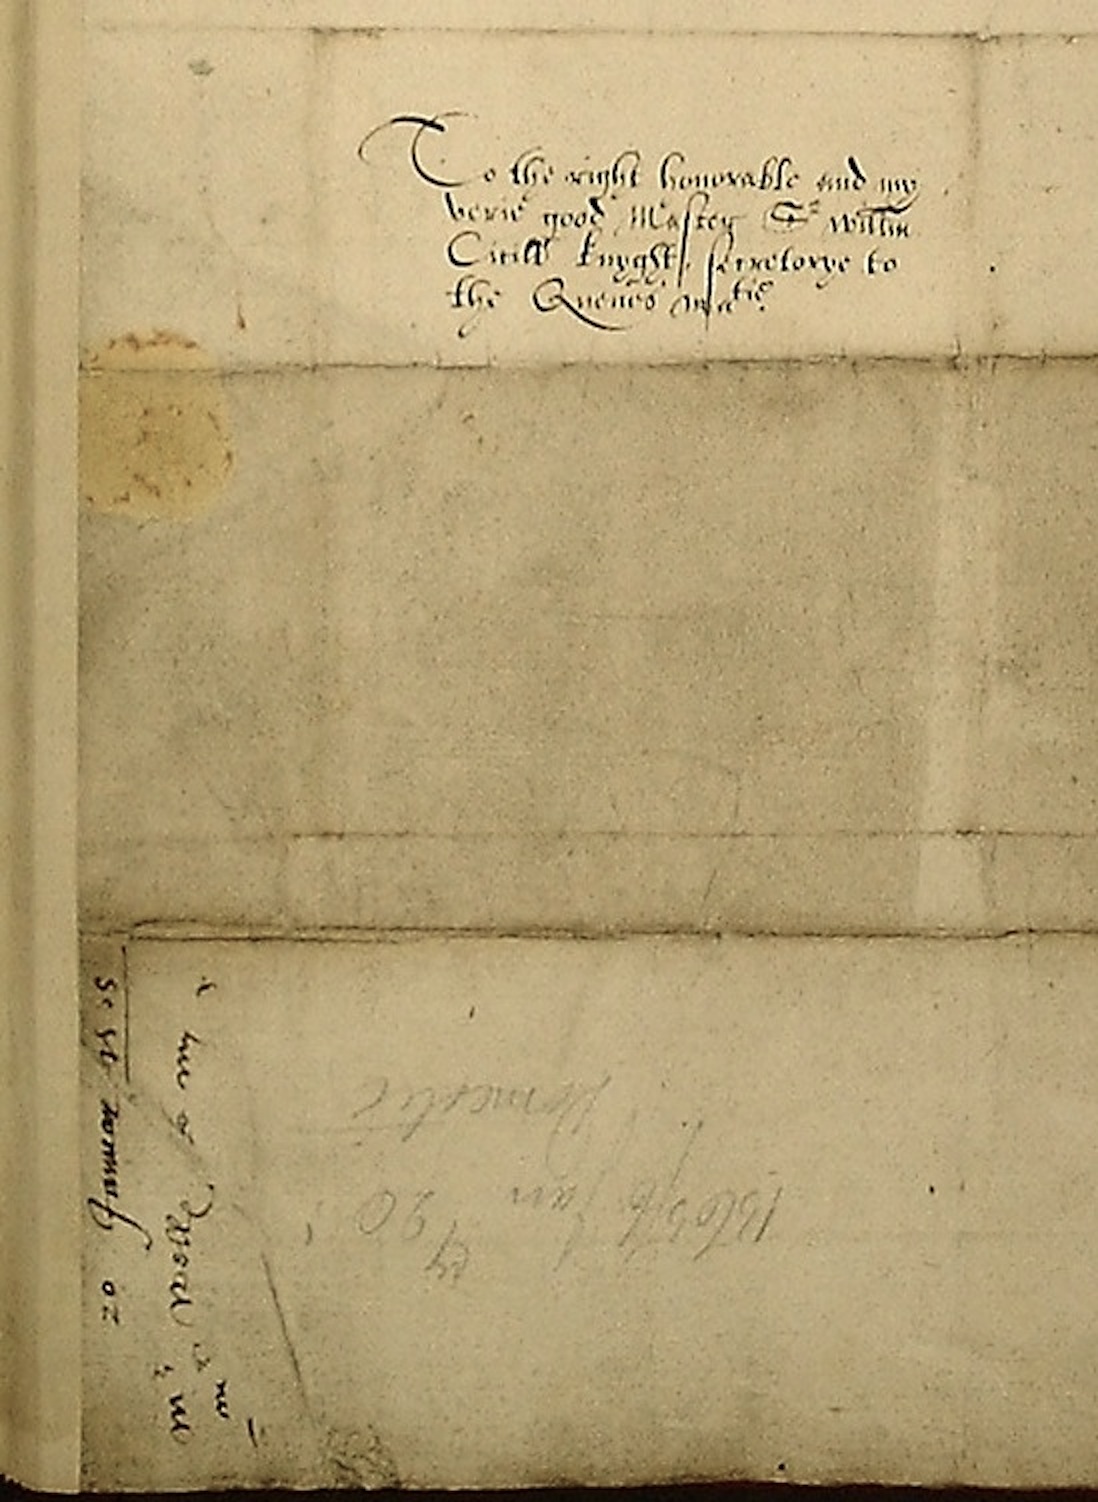 To the right honorable and my
verie good Master Sr Willm
Cicill knyght, secretorye to
the Quenes matie.
20 January 1565
1565/6 Jan 20
Domestic